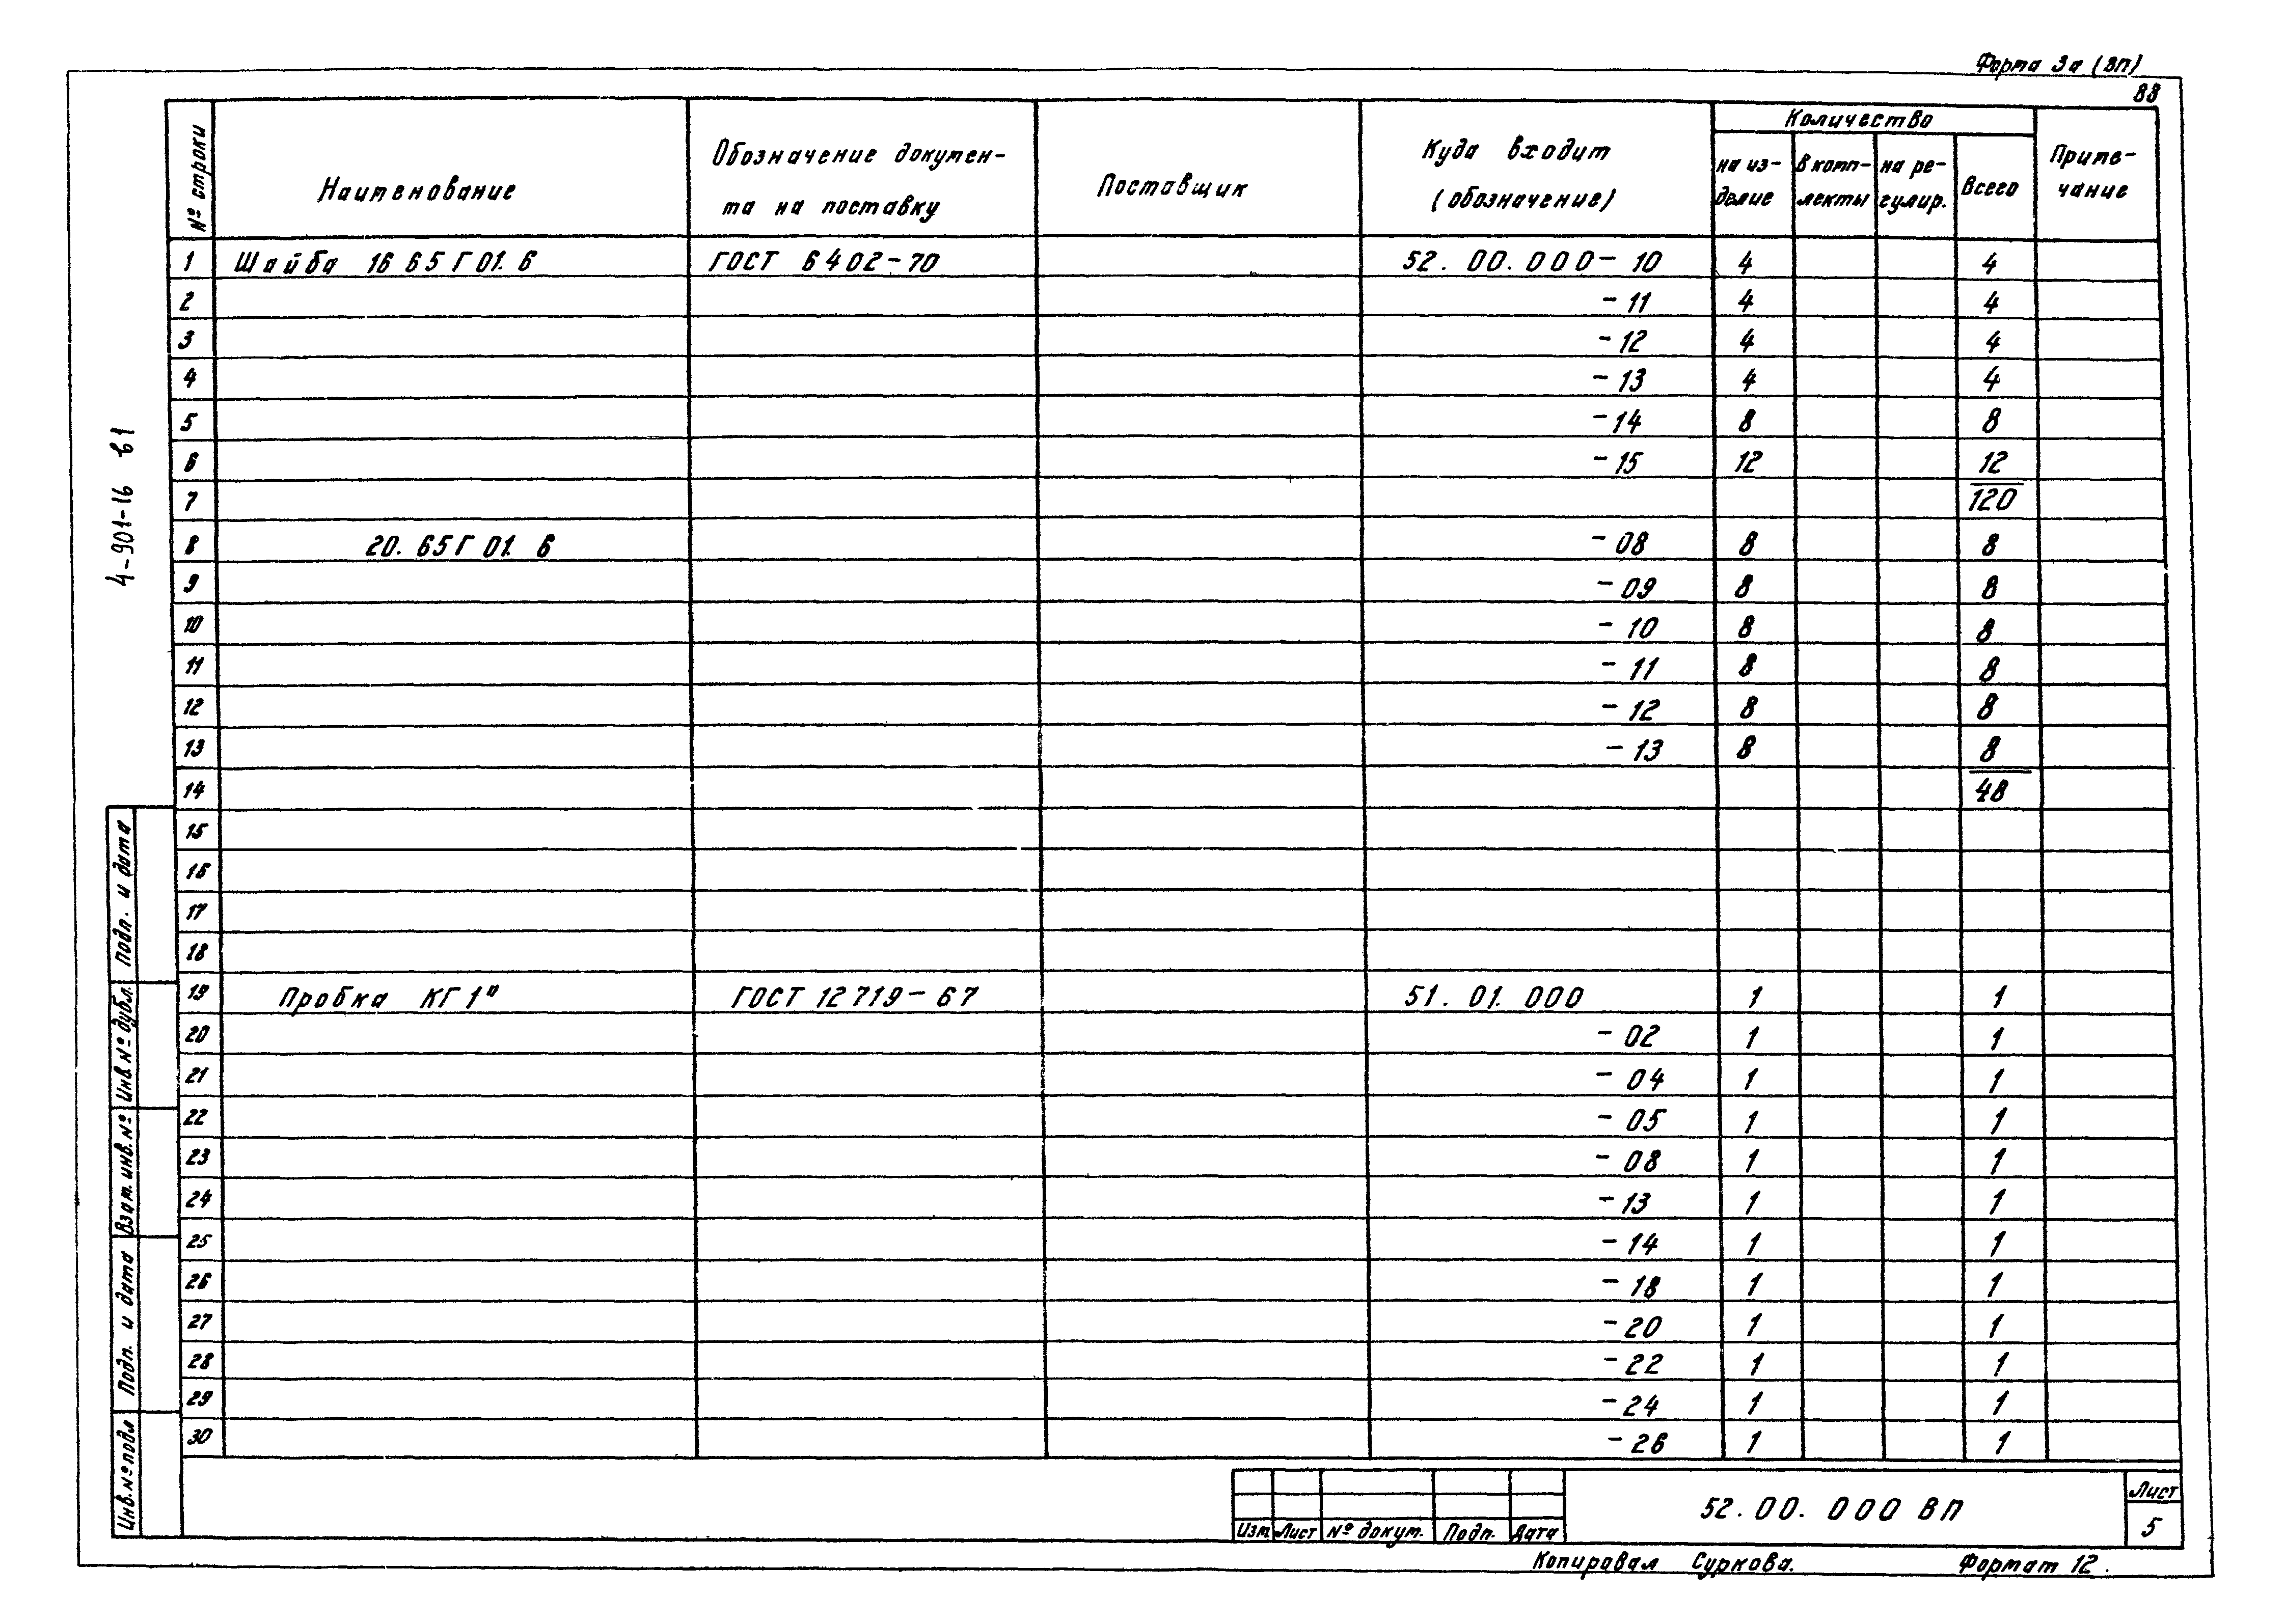 Форма 3а (ВП)
88
№ строки
Наименование
Обозначение докумен-
та на поставку
Поставщик
Куда входит
(обозначение)
Количество
на из-
делие
в комп-
лекты
на ре-
гулир.
Всего
Приме-
чание
1 Шайба 16 65Г 01. 6 ГОСТ 6402-70 52. 00. 000- 10 4 4
2 -11 4 4
3 -12 4 4
4 -13 4 4
5 -14 8 8
6 -15 12 12
7 120
8 20. 65Г 01. 6 -08 8 8
9 -09 8 8
10 -10 8 8
11 -11 8 8
12 -12 8 8
13 -13 8 8
14 48
15
16
17
18
19 Пробка КГ 1" ГОСТ 12719-67 51. 01. 000 1 1
20 -02 1 1
21 -04 1 1
22 -05 1 1
23 -08 1 1
24 -13 1 1
25 -14 1 1
26 -18 1 1
27 -20 1 1
28 -22 1 1
29 -24 1 1
30 -26 1 1
4-901-16 в1
Подп. и дата
Инв. № дубл.
Взам. инв. №
Подп. и дата
Инв. № подл
Изм Лист № докум. Подп. Дата
52. 00. 000 ВП
Лист
5
Копировал Суркова. Формат 12.